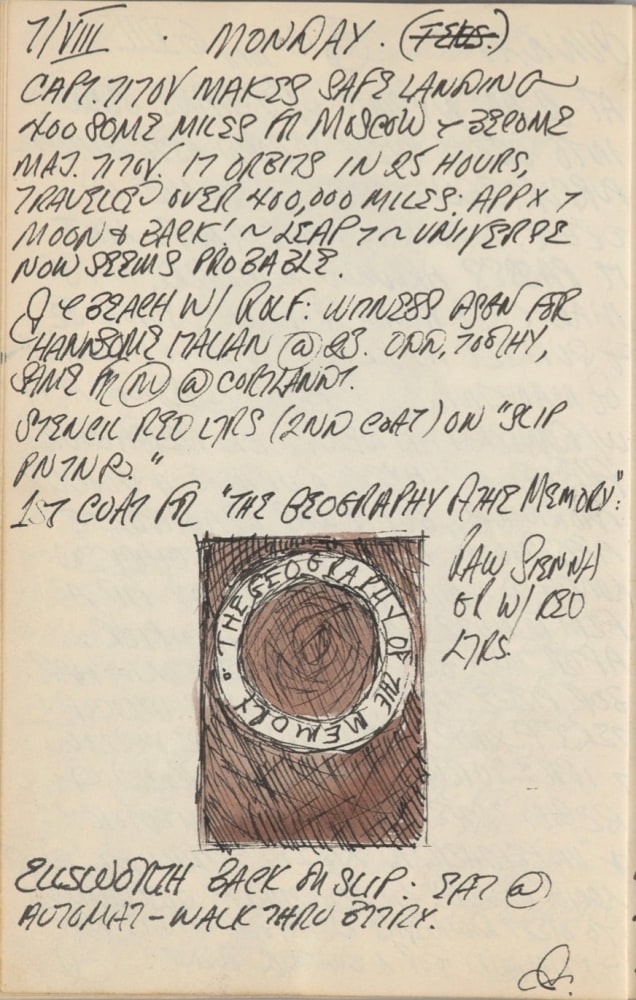 7/VIII · MONDAY.
CAPT. TITOV MAKES SAFE LANDING
400 SOME MILES FR MOSCOW & BECOME
MAJ. TITOV. 17 ORBITS IN 25 HOURS,
TRAVELED OVER 400,000 MILES: APPX T
MOON & BACK! ~ LEAP T ~ UNIVERSE
NOW SEEMS PROBABLE.
BEACH W/ ROLF: WITNESS AGEN FOR
HANDSOME ITALIAN @ 23. ODD, TOOTHY,
SAME FR M @ CORTLANDT.
STENCIL RED LTRS (2ND COAT) ON "SLIP
PNTNR."
1ST COAT FR "THE GEOGRAPHY OF THE MEMORY":
THE GEOGRAPHY OF THE MEMORY
RAW SIENNA
GR W/ RED
LTRS.
ELLSWORTH BACK ON SLIP: EAT @
AUTOMAT – WALK THRU BTTRY.